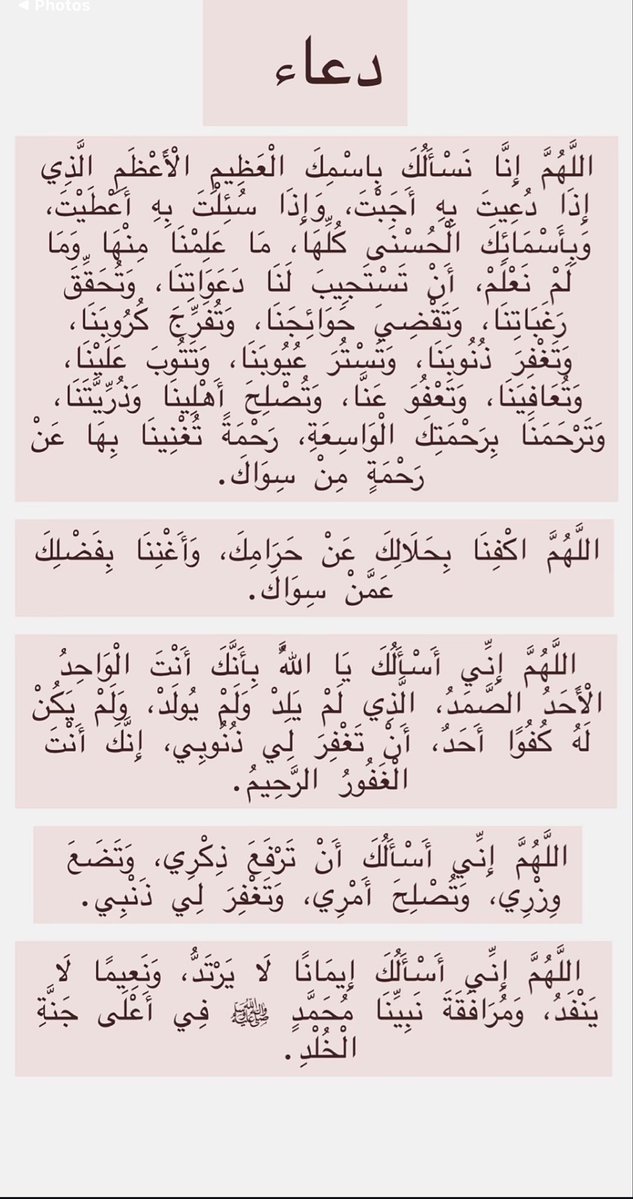 ◀ Photos
دعاء
اللَّهُمَّ إِنَّا نَسْأَلُكَ بِاسْمِكَ الْعَظِيمِ الْأَعْظَمِ الَّذِي
إِذَا دُعِيتَ بِهِ أَجَبْتَ، وَإِذَا سُئِلْتَ بِهِ أَعْطَيْتَ،
وَبِأَسْمَائِكَ الْحُسْنَى كُلِّهَا، مَا عَلِمْنَا مِنْهَا وَمَا
لَمْ نَعْلَمْ، أَنْ تَسْتَجِيبَ لَنَا دَعَوَاتِنَا، وَتُحَقِّقَ
رَغَبَاتِنَا، وَتَقْضِيَ حَوَائِجَنَا، وَتُفَرِّجَ كُرُوبَنَا،
وَتَغْفِرَ ذُنُوبَنَا، وَتَسْتُرَ عُيُوبَنَا، وَتَتُوبَ عَلَيْنَا،
وَتُعَافِيَنَا، وَتَعْفُوَ عَنَّا، وَتُصْلِحَ أَهْلِينَا وَذُرِّيَّتَنَا،
وَتَرْحَمَنَا بِرَحْمَتِكَ الْوَاسِعَةِ، رَحْمَةً تُغْنِينَا بِهَا عَنْ
رَحْمَةٍ مِنْ سِوَاكَ.
اللَّهُمَّ اكْفِنَا بِحَلَالِكَ عَنْ حَرَامِكَ، وَأَغْنِنَا بِفَضْلِكَ
عَمَّنْ سِوَاكَ.
اللَّهُمَّ إِنِّي أَسْأَلُكَ يَا اللَّهُ بِأَنَّكَ أَنْتَ الْوَاحِدُ
الْأَحَدُ الصَّمَدُ، الَّذِي لَمْ يَلِدْ وَلَمْ يُولَدْ، وَلَمْ يَكُنْ
لَهُ كُفُوًا أَحَدٌ، أَنْ تَغْفِرَ لِي ذُنُوبِي، إِنَّكَ أَنْتَ
الْغَفُورُ الرَّحِيمُ.
اللَّهُمَّ إِنِّي أَسْأَلُكَ أَنْ تَرْفَعَ ذِكْرِي، وَتَضَعَ
وِزْرِي، وَتُصْلِحَ أَمْرِي، وَتَغْفِرَ لِي ذَنْبِي.
اللَّهُمَّ إِنِّي أَسْأَلُكَ إِيمَانًا لَا يَرْتَدُّ، وَنَعِيمًا لَا
يَنْفَدُ، وَمُرَافَقَةَ نَبِيِّنَا مُحَمَّدٍ ﷺ فِي أَعْلَى جَنَّةِ
الْخُلْدِ.